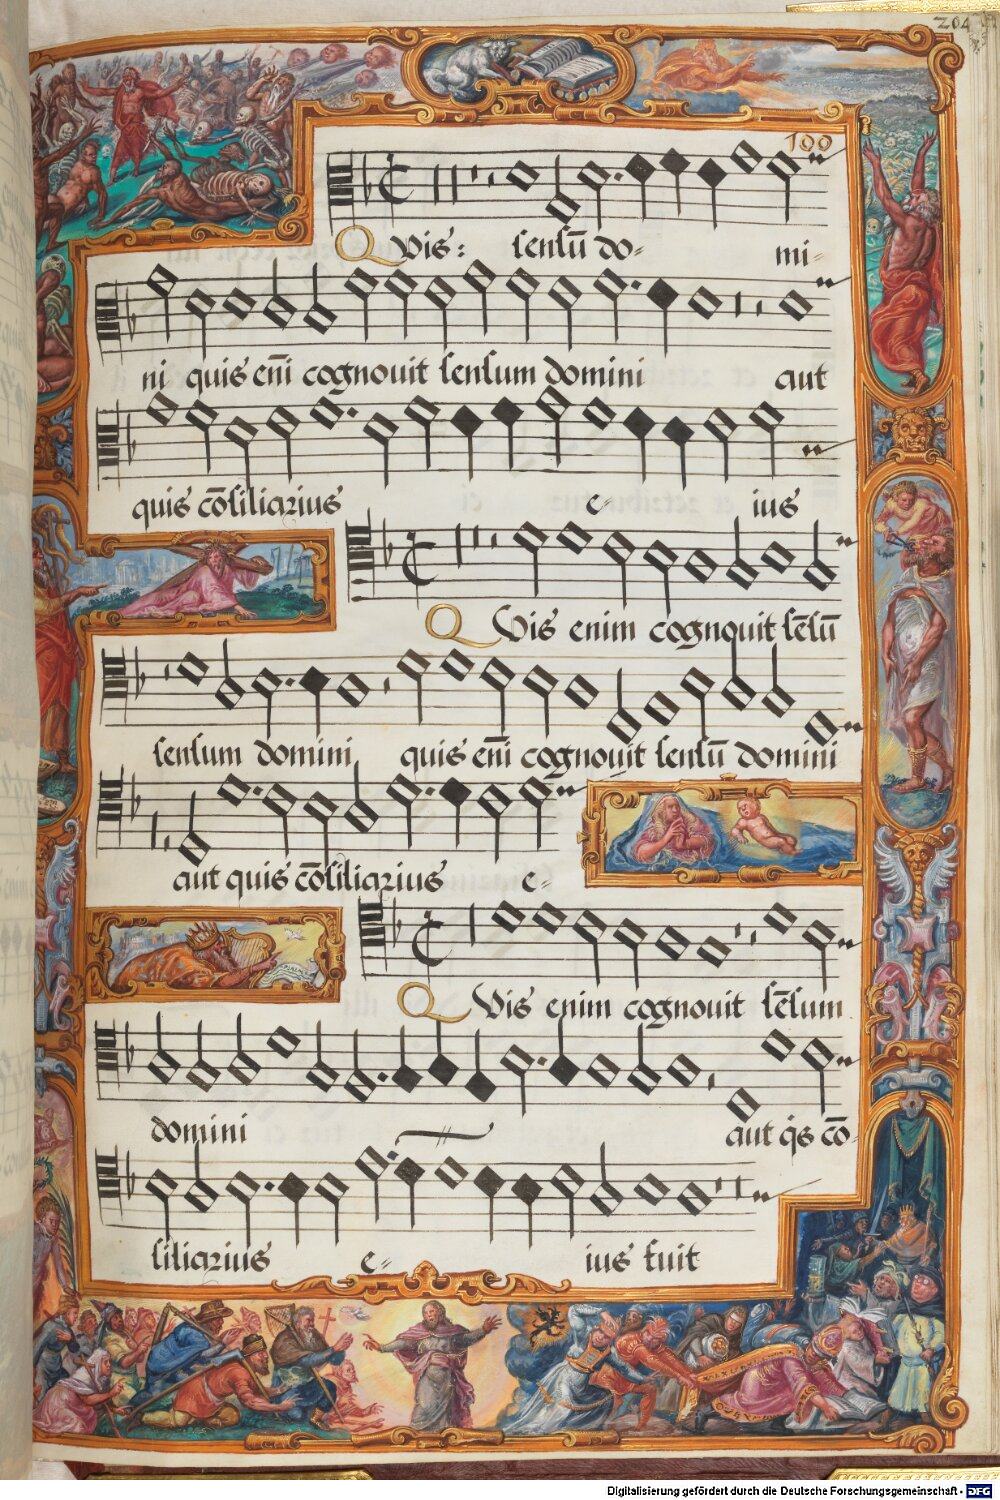 204
100
Qvis: sensū do- mi-
ni quis em̄i cognouit sensum domini aut
quis cōsiliarius e- ius
Qvis enim cognouit sēsū
sensum domini quis em̄i cognouit sensū domini
aut quis cōsiliarius e-
Qvis enim cognouit sēsum
domini aut q̇s cō-
siliarius e- ius fuit
Digitalisierung gefördert durch die Deutsche Forschungsgemeinschaft - DFG